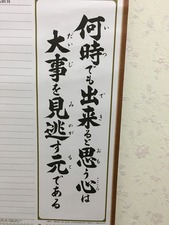 何時でも出来ると思う心は
大事を見逃す元である